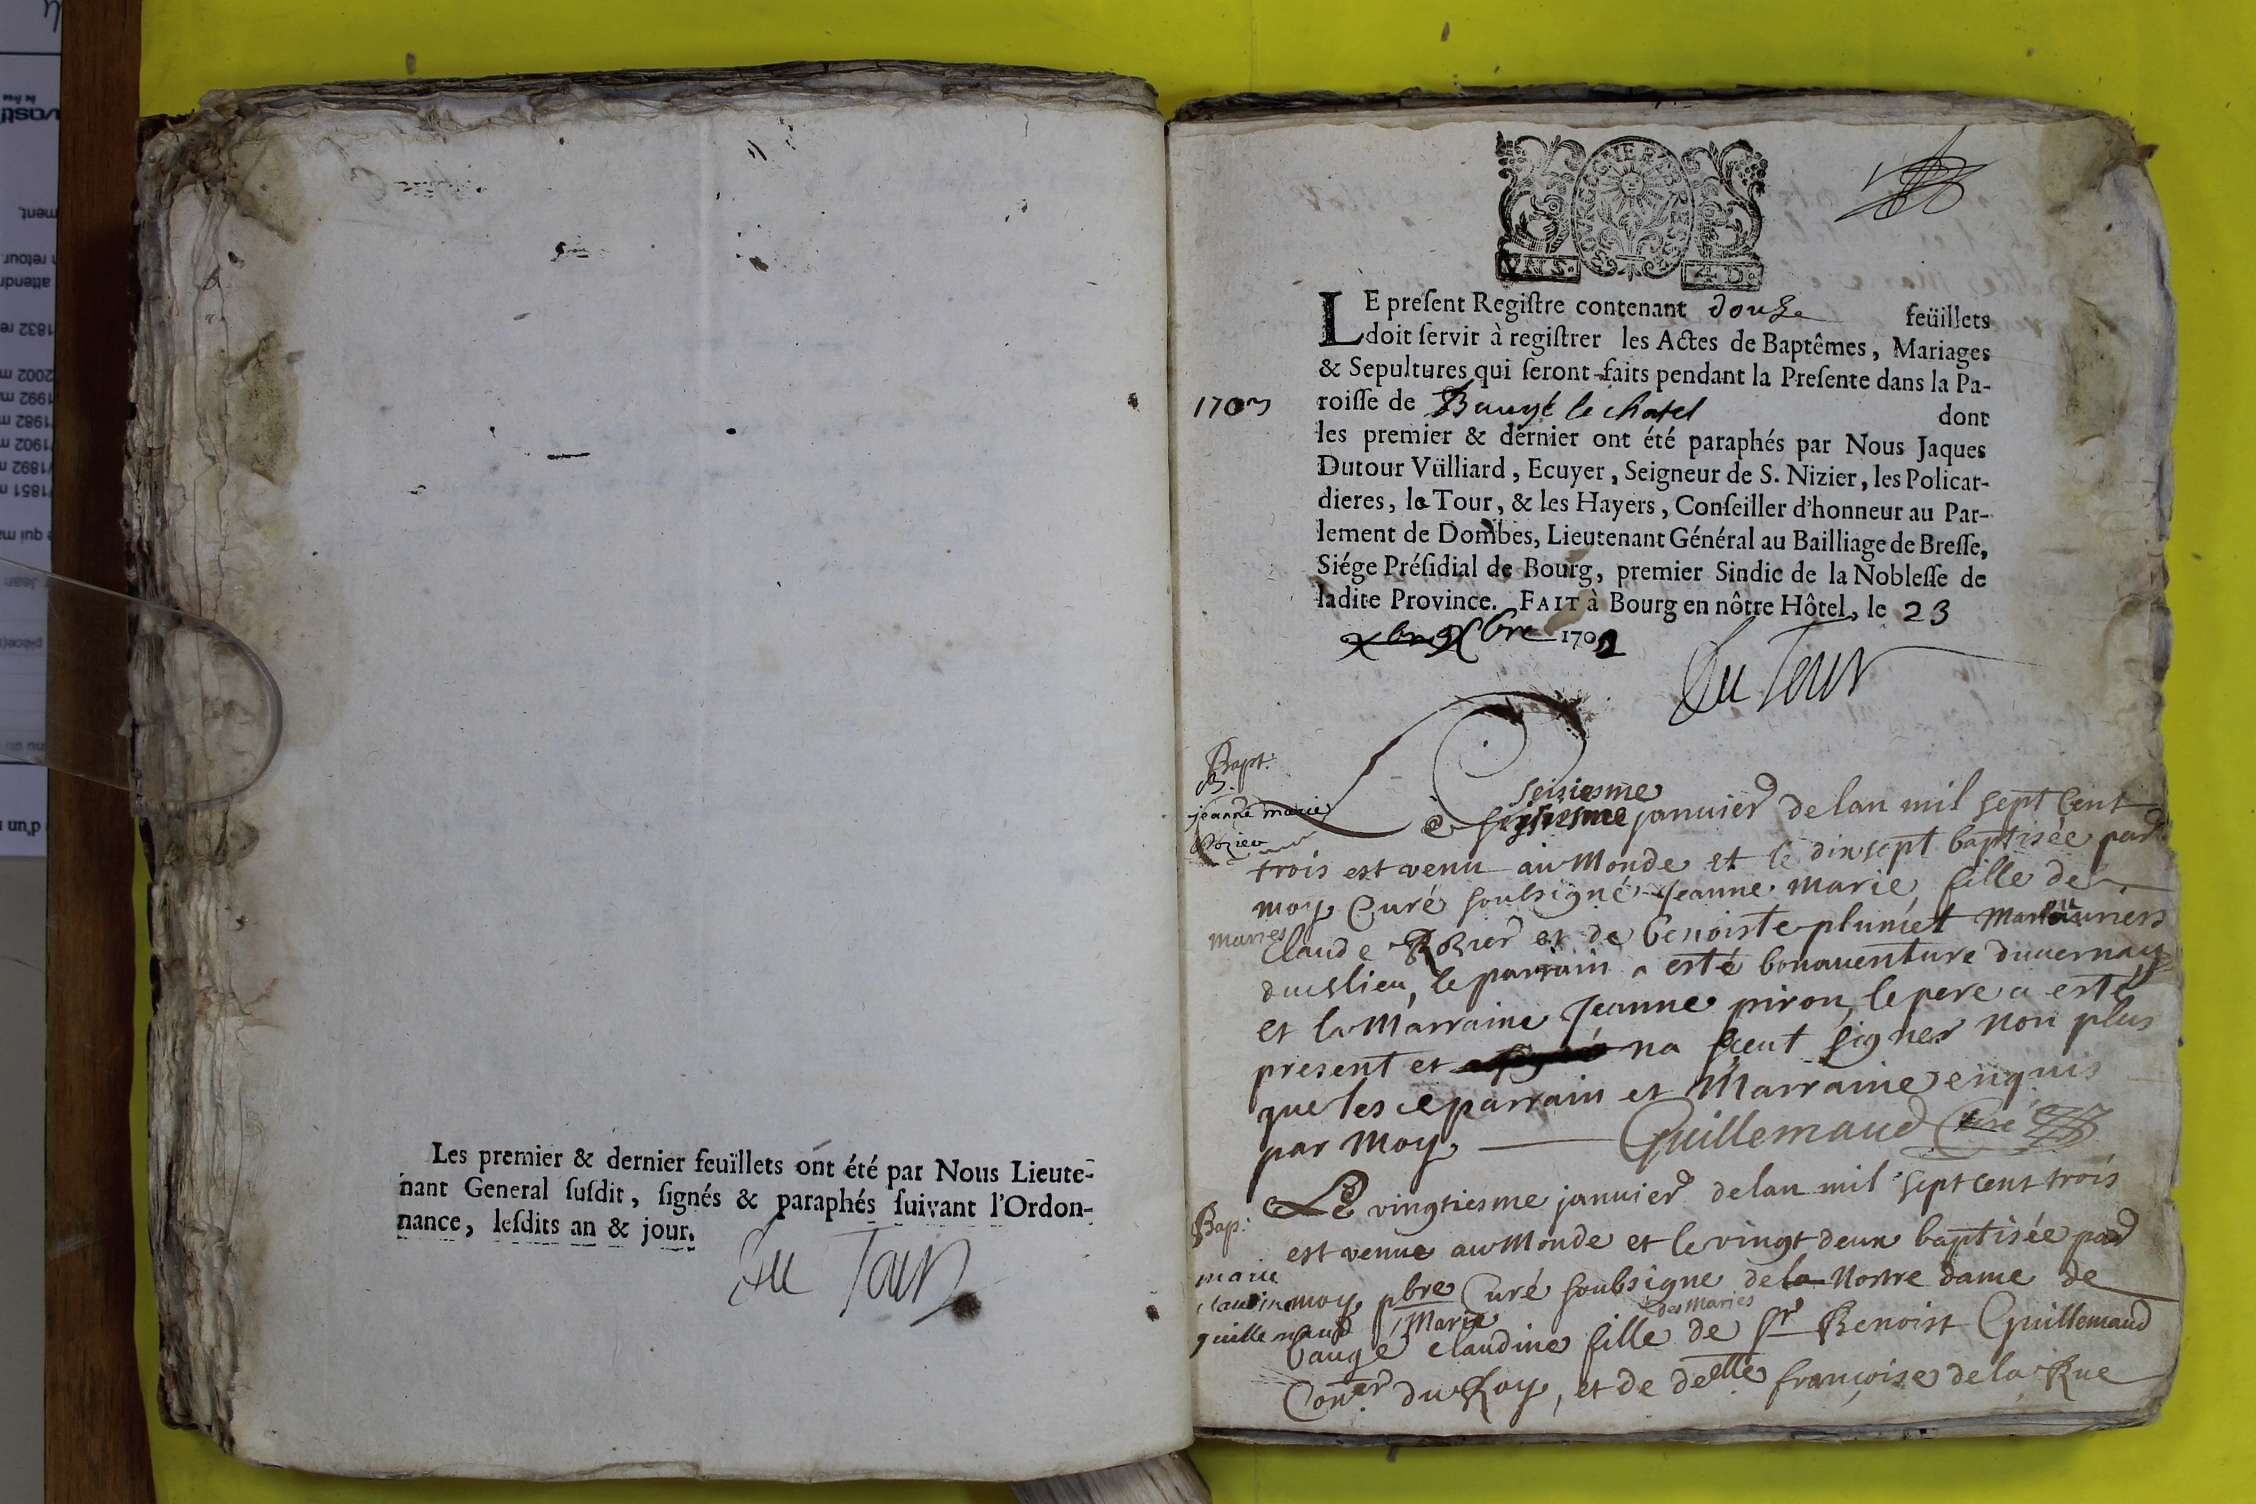 Les premier & dernier feüillets ont été par Nous Lieute-
nant General ſuſdit, ſignés & paraphés ſuivant l'Ordon-
nance, leſdits an & jour.
Du Tour
VN S.
4 D.
LE preſent Regiſtre contenant douze feüillets
doit ſervir à regiſtrer les Actes de Baptêmes, Mariages
& Sepultures qui ſeront faits pendant la Preſente dans la Pa-
1703
roiſſe de Baugé le chatel dont
les premier & dernier ont été paraphés par Nous Jaques
Dutour Vülliard, Ecuyer, Seigneur de S. Nizier, les Policar-
dieres, la Tour, & les Hayers, Conſeiller d'honneur au Par-
lement de Dombes, Lieutenant Général au Bailliage de Breſſe,
Siége Préſidial de Bourg, premier Sindic de la Nobleſſe de
ladite Province. FAIT à Bourg en nôtre Hôtel, le 23
Xbre 1702
Du Tour
Bapt.
jeanne marie
Rozier
seiziesme
Le janvier de lan mil sept Cent
trois est venu au Monde et le dix sept baptisée par
moy Curé soubsigné Jeanne Marie, fille de
mariés
Claude Rozier et de benoiste plumet
dud lieu, le parrain a esté bonaventure duvernay
et la Marraine Jeanne piron, le pere a esté
present et na sceut signer non plus
que les parrain et Marraine enquis
par moy. Guillemaud Curé
Le vingtiesme janvier de lan mil sept cent trois
Bap:
est venue au Monde et le vingt deux baptisée par
marie
claudine
guillemaud
moy pbre Curé soubsigne de la Nostre dame de
Marie
des Mariés
baugé claudine fille de Sr Benoist Guillemaud
Coner du Roy, et de delle françoise de la Rue